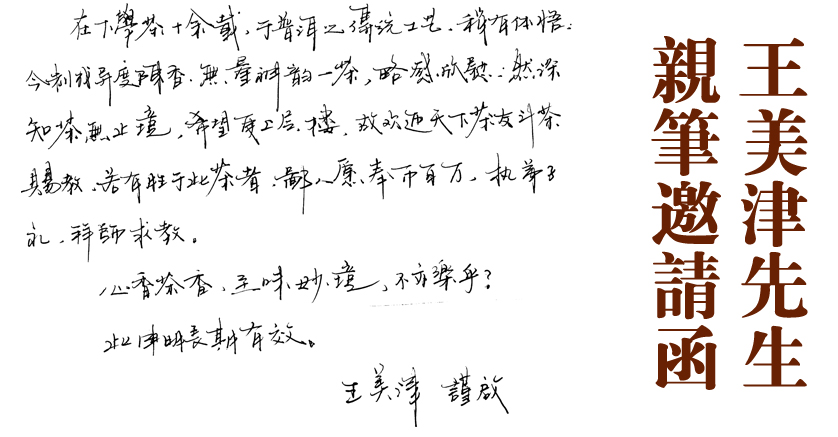 在下學茶十余載，于普洱之傳統工艺，稍有体悟；
今制成异度陳香、無量神韵一茶，略感欣慰；然深
知茶無止境，希望更上层楼，故欢迎天下茶友斗茶
賜教。若有胜于此茶者，鄙人愿奉币百万，执弟子
礼，拜師求教。
心香茶香，至味妙境，不亦樂乎？
此津明長期有效。
王美津 謹啟
王美津先生
親筆邀請函